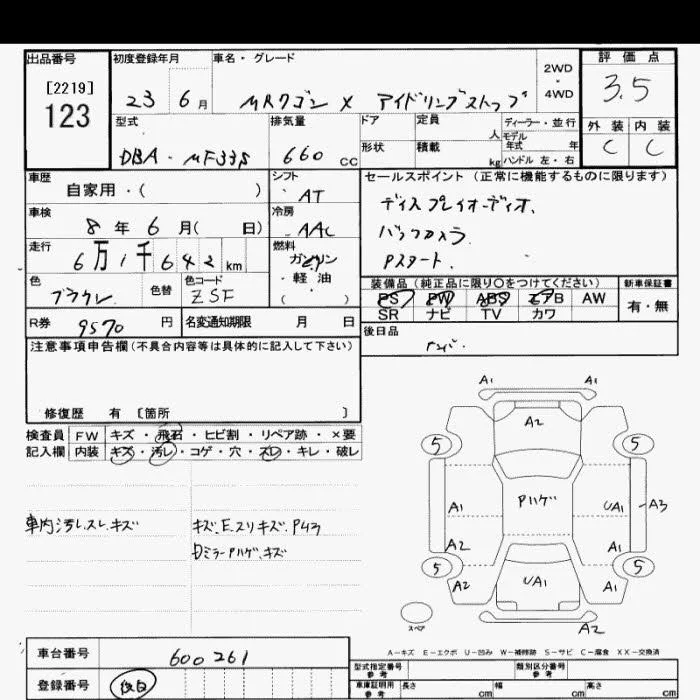 出品番号
[2219]
123
初度登録年月
23 6月
車名・グレード
MRワゴン X アイドリングストップ
2WD
・
4WD
評価点
3.5
外装 内装
C C
型式
DBA - MF33S
排気量
660 CC
ドア
形状
定員
人
積載
kg
ディーラー・並行
モデル
年式 年
ハンドル 左・右
車歴
自家用・( )
シフト
AT
車検
8年6月( 日)
冷房
AAC
走行
6万1千642km
燃料
ガソリン
・軽油
( )
色
ブラウン
色替
色コード
ZSF
R券
9570円
名変通知期限 月 日
セールスポイント(正常に機能するものに限ります)
ディスプレイオーディオ、
バックカメラ
Pスタート.
装備品(純正品に限り〇をつけてください)
PS PW ABS エアB AW
SR ナビ TV カワ
新車保証書
有・無
後日品
注意事項申告欄(不具合内容等は具体的に記入して下さい)
修復歴 有 〔箇所 〕
検査員
記入欄
FW キズ・飛石・ヒビ割・リペア跡・×要
内装 キズ・汚レ・コゲ・穴・スレ・キレ・破レ
車内汚レ.スレ.キズ
キズ.E.スリキズ.P43
Dミラーpハゲ.キズ
A1 A1
A2
5 5
A1 Pハゲ UA1 A3
A2 A1
5 5
A2 UA1 A1
A2
スペア
A-キズ E-エクボ U-凹み W-補修跡 S-サビ C-腐食 XX-交換済
車台番号
600261
登録番号
後日
型式指定番号
参考
類別区分番号
参考
車庫証明用
参考
長さ cm
幅 cm
高さ cm